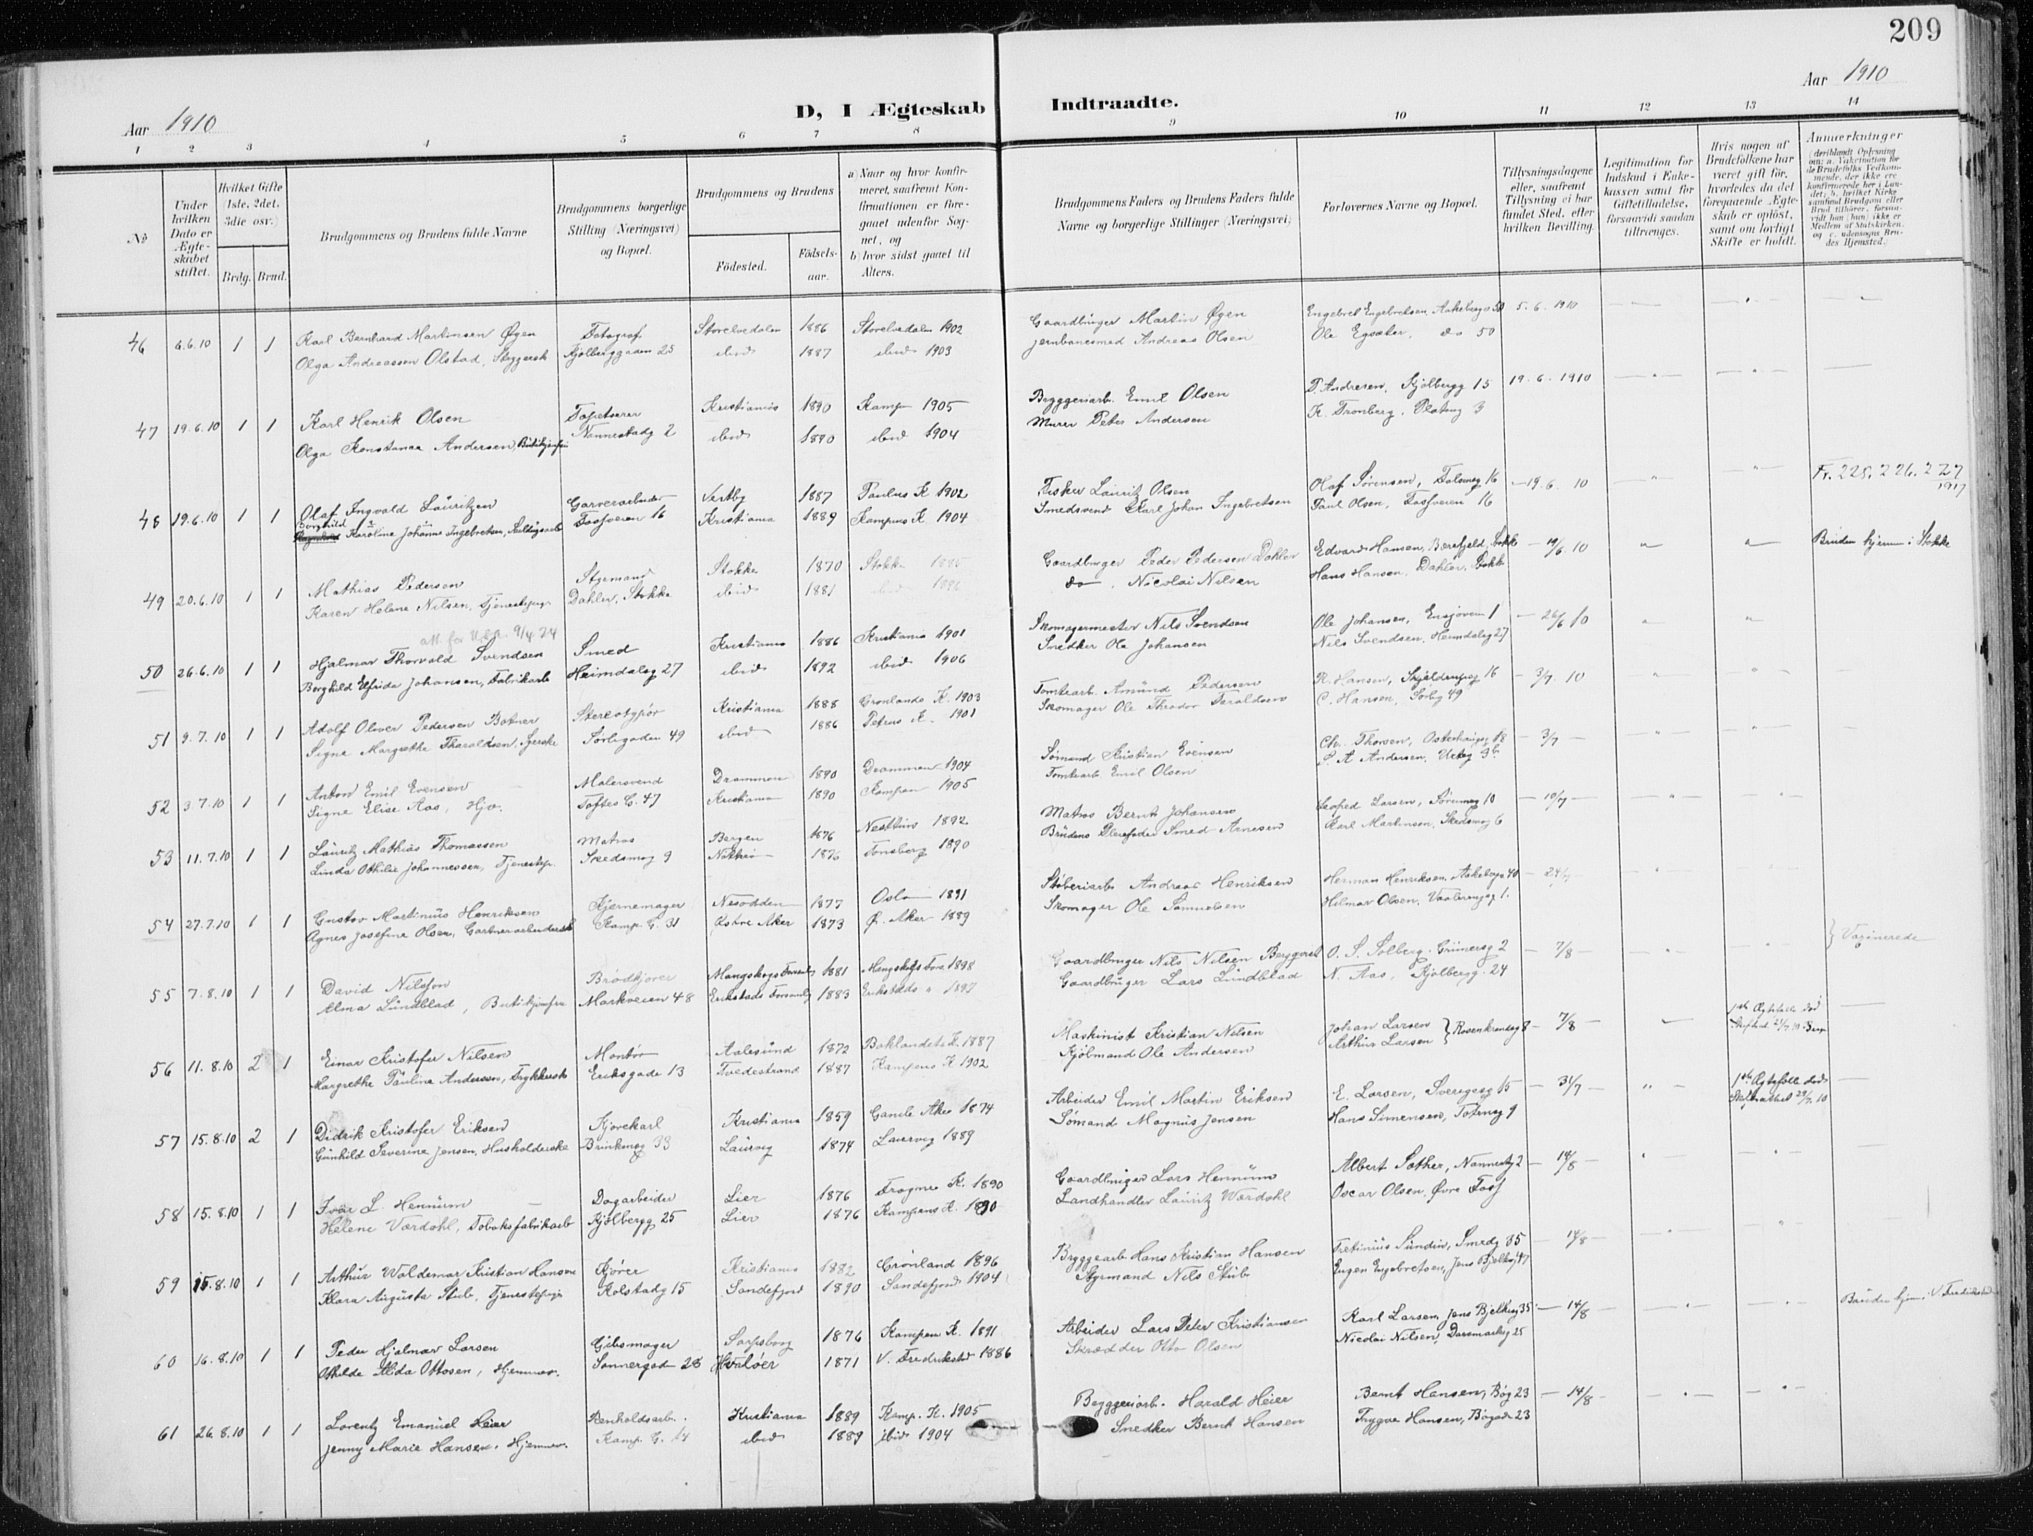 209
Aar 1910
D, I Ægteskab Indtraadte.
Aar 1910
1 2 3 4 5 6 7 8 9 10 11 12 13 14
No
Under hvilken Dato er Ægteskabet stiftet.
Hvilket Gifte (1ste, 2det, 3die osv.)
Brdg. Brud.
Brudgommens og Brudens fulde Navne
Brudgommens borgerlige Stilling (Næringsvei) og Bopæl.
Brudgommens og Brudens
Fødested. Fødselsaar.
a) Naar og hvor konfirmeret, saafremt Konfirmationen er foregaaet udenfor Sognet, og
b) hvor sidst gaaet til Alters.
Brudgommens Faders og Brudens Faders fulde Navne og borgerlige Stillinger (Næringsvei)
Forlovernes Navne og Bopæl.
Tillysningsdagene eller, saafremt Tillysning ei har fundet Sted, efter hvilken Bevilling.
Legitimation for Indskud i Enkekassen samt for Giftetilladelse, forsaavidt saadan tiltrænges.
Hvis nogen af Brudefolkene har været gift før, hvorledes da det foregaaende Ægteskab er opløst, samt om lovligt Skifte er holdt.
Anmerkninger (deriblandt Oplysning om: a. Vakcination for de Brudefolks Vedkommende, der ikke ere konfirmerede her i Landet; b. hvilket Kirkesamfund Brudgom eller Brud tilhører, forsaavidt han (hun) ikke er Medlem af Statskirken, og c. udensogns Brudes Hjemsted.)
46 6.6.10 1 1 Karl Bernhard Martinsen Øgen Fotograf Storelvedalen 1886 Storelvedalen 1902 Gaardbruger Martin Øgen Engebret Engebretsen, Aakebergv 50 5.6.1910
Olga Andreassen Olstad, Kjølberggaden 25 ibid 1887 ibid 1903 Jernbanesmed Andreas Olsen Ole Egsæter, do 50
47 19.6.10 1 1 Karl Henrik Olsen Tapetserer Kristiania 1890 Kampen 1905 Bryggeriarb. Emil Olsen T. Andresen, Kjølbergg 15 19.6.1910
Olga Konstanse Andersen, Nannestadg 2 ibid 1890 ibid 1904 Murer Peter Andersen K. Tronberg, Platoug 3
48 19.6.10 1 1 Olaf Ingvald Lauritzen Garverarbeider Vestby 1887 Paulus K 1902 Fisker Lauritz Olsen Olaf Sørensen, 16 - 19.6 10 Fr. 225, 226, 227 1917
Borghild Karoline Johanne Ingebretsen, Fossveien 16 Kristiania 1889 Kampens K 1904 Smedsvend Karl Johan Ingebretsen Paul Olsen, Fossveien 16
49 20.6.10 1 1 Mathias Pedersen Styrmand Stokke 1870 Stokke 1885 Gaardbruger Peder Pedersen Dahler Edvard Hansen, Bærefjeld, Stokke - 19/6.10 Bruden hjem. i Stokke
Karen Helene Nilsen, Tjenestepige Dahler, Stokke ibid 1881 ibid 1896 do Nicolai Nilsen Hans Hansen, Dahler, Stokke
att. for U.S.A. 9/4 24
50 26.6.10 1 1 Hjalmar Thorvald Svendsen Smed Kristiania 1886 Kristiania 1901 Skomagermester Nils Svendsen Ole Johansen, Ensjøveien 1 - 26/6 10
Borghild Elfrida Johansen, Fabrikarb Heimdalsg 27 ibid 1892 ibid 1906 Snedker Ole Johansen Nils Svendsen, Heimdalsg 27
51 9.7.10 1 1 Adolf Oliver Pedersen Botner Stereotypør Kristiania 1888 Grønlands K. 1903 Tomtearb. Amund Pedersen R. Hansen, Skjeldrupsg 16 - 3/7.10
Signe Margrethe Tharaldsen, Syerske Sørligaden 49 ibid 1886 Petrus K. 1901 Skomager Ole Theodor Taraldsen C. Hansen, Sørlig 49
52 3.7.10 1 1 Anton Emil Evensen Malersvend Drammen 1890 Drammen 1904 Sømand Kristian Evensen Chr. Thorsen, Osterhausg 18 - 3/7 -
Signe Elise Aas, Hjv. Toftes G. 47 Kristiania 1890 Kampen 1905 Tomtearb. Emil Olsen L. A. Andersen, Urteg 36
53 11.7.10 1 1 Lauritz Mathias Thomassen Matros Bergen 1876 1892 Matros Bernt Johansen Leofred Larsen, Sørumsg 10 - 10/7 -
Linda Othilie Johannessen, Tjenestep. Skedsmog 9 Nøtterø 1876 Tønsberg 1890 Brudens Plejefader Smed Arnesen Karl Martinsen, Skedsmog 6
54 27.7.10 1 1 Gustav Martinius Henriksen Kjernemager Nesodden 1877 Oslo 1891 Støberiarb Andreas Henriksen Herman Henriksen, Aakebergv 40 - 24/7
Agnes Josefine Olsen, Gartnerarbeiderske Kamp. G. 31 Østre Aker 1873 Ø. Aker 1889 Skomager Ole Samuelsen Hilmar Olsen, Vaalerengg 1.
55 7.8.10 1 1 David Nilsson Brødkjører Mangskogs Forsaml 1881 Mangskogs Fors 1898 Gaardbruger Nils Nilsen O. S. Solberg, Grünersg 2 - 7/8 - } Vaxinerede
Alma Lundblad, Butikjomfru Markveien 48 Erikstads Forsaml 1883 Erikstads " 1897 Gaardbruger Lars Lundblad N. Aas, Kjølbergg. 24
56 11.8.10 2 1 Einar Kristofer Nilsen Montør Aalesund 1872 Baklandets K. 1887 Maskinist Kristian Nilsen Johan Larsen } Rosenkrantzg 8 - 7/8 - 1ste Ægtefælle død
Margrethe Paulina Andersen, Trykkerske Eriksgade 13 Tvedestrand 1887 Kampens K 1902 Kjøbmand Ole Andersen Arthur Larsen
57 15.8.10 2 1 Didrik Kristofer Eriksen Kjørekarl Kristiania 1859 Gamle Aker 1874 Arbeider Emil Martin Eriksen E. Larsen, Sverigesg 15 - 31/7 - 1ste Ægtefælle død
Gunhild Severine Jensen, Husholderske Brinkensg 33 Laurvig 1874 Laurvig 1889 Sømand Magnus Jensen Hans Simensen, Totensg 9
58 15.8.10 1 1 Ivar L. Hennum Dagarbeider Lier 1876 Frogner K. 1890 Gaardbruger Lars Hennum Albert Sæther, Nannestg 2 - 14/8 -
Helene Værdahl, Tobaksfabrikarb Kjølbergg 25 Lier 1876 Kampens K. 1890 Landhandler Lauritz Værdahl Oscar Olsen, Øvre Foss
59 15.8.10 1 1 Arthur Waldemar Kristian Hansen Kjører Kristiania 1882 Grønland 1896 Bryggearb Hans Kristian Hansen Fretinius Sundin, Smedg 35 - 14/8 -
Klara Augusta Stub, tjenestepige Kolstadg 15 Sandefjord 1890 Sandefjord 1904 Styrmand Nils Stub Eugen Engebretsen, Jens Bjelkesg 47
60 16.8.10 1 1 Peder Hjalmar Larsen Gibsmager Sarpsborg 1876 Kampen K. 1891 Arbeider Lars Peter Kristiansen Karl Larsen, Jens Bjelkesg 35 - 14/8 Bruden hjem. i V. Fredrikstad
Othilde Alida Ottosen, Hjemmev. Sannergad 28 Hvaløer 1871 V. Fredrikstad 1886 Skrædder Otto Olsen Nicolai Nilsen, Danmarksg 25
61 26.8.10 1 1 Lorentz Emanuel Heier Renholdsarb. Kristiania 1889 Kamp. K. 1905 Bryggeriarb. Harald Heier Bernt Hansen, Bøg 23 - 14/8 -
Jenny Marie Hansen, Hjemmev. Kamp. G. 14 ibid 1889 ibid 1904 Snedker Bernt Hansen Trygve Hansen, Bøgade 23